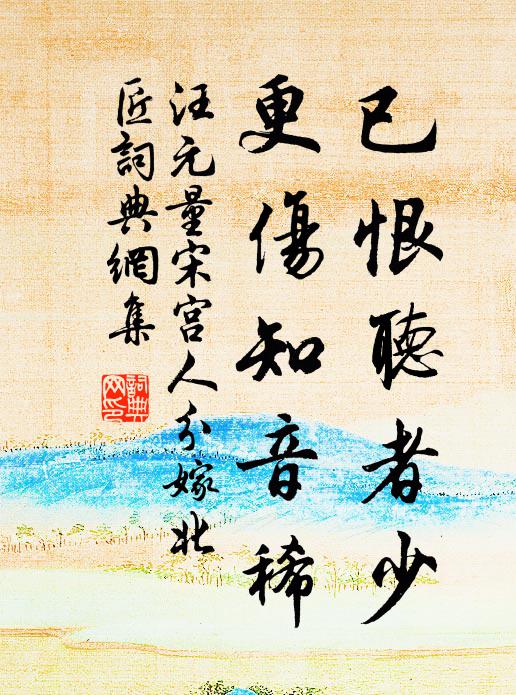 已恨聽者少
更傷知音稀
汪元量宋宮人分嫁北
匠詞典網集
詞典
网印